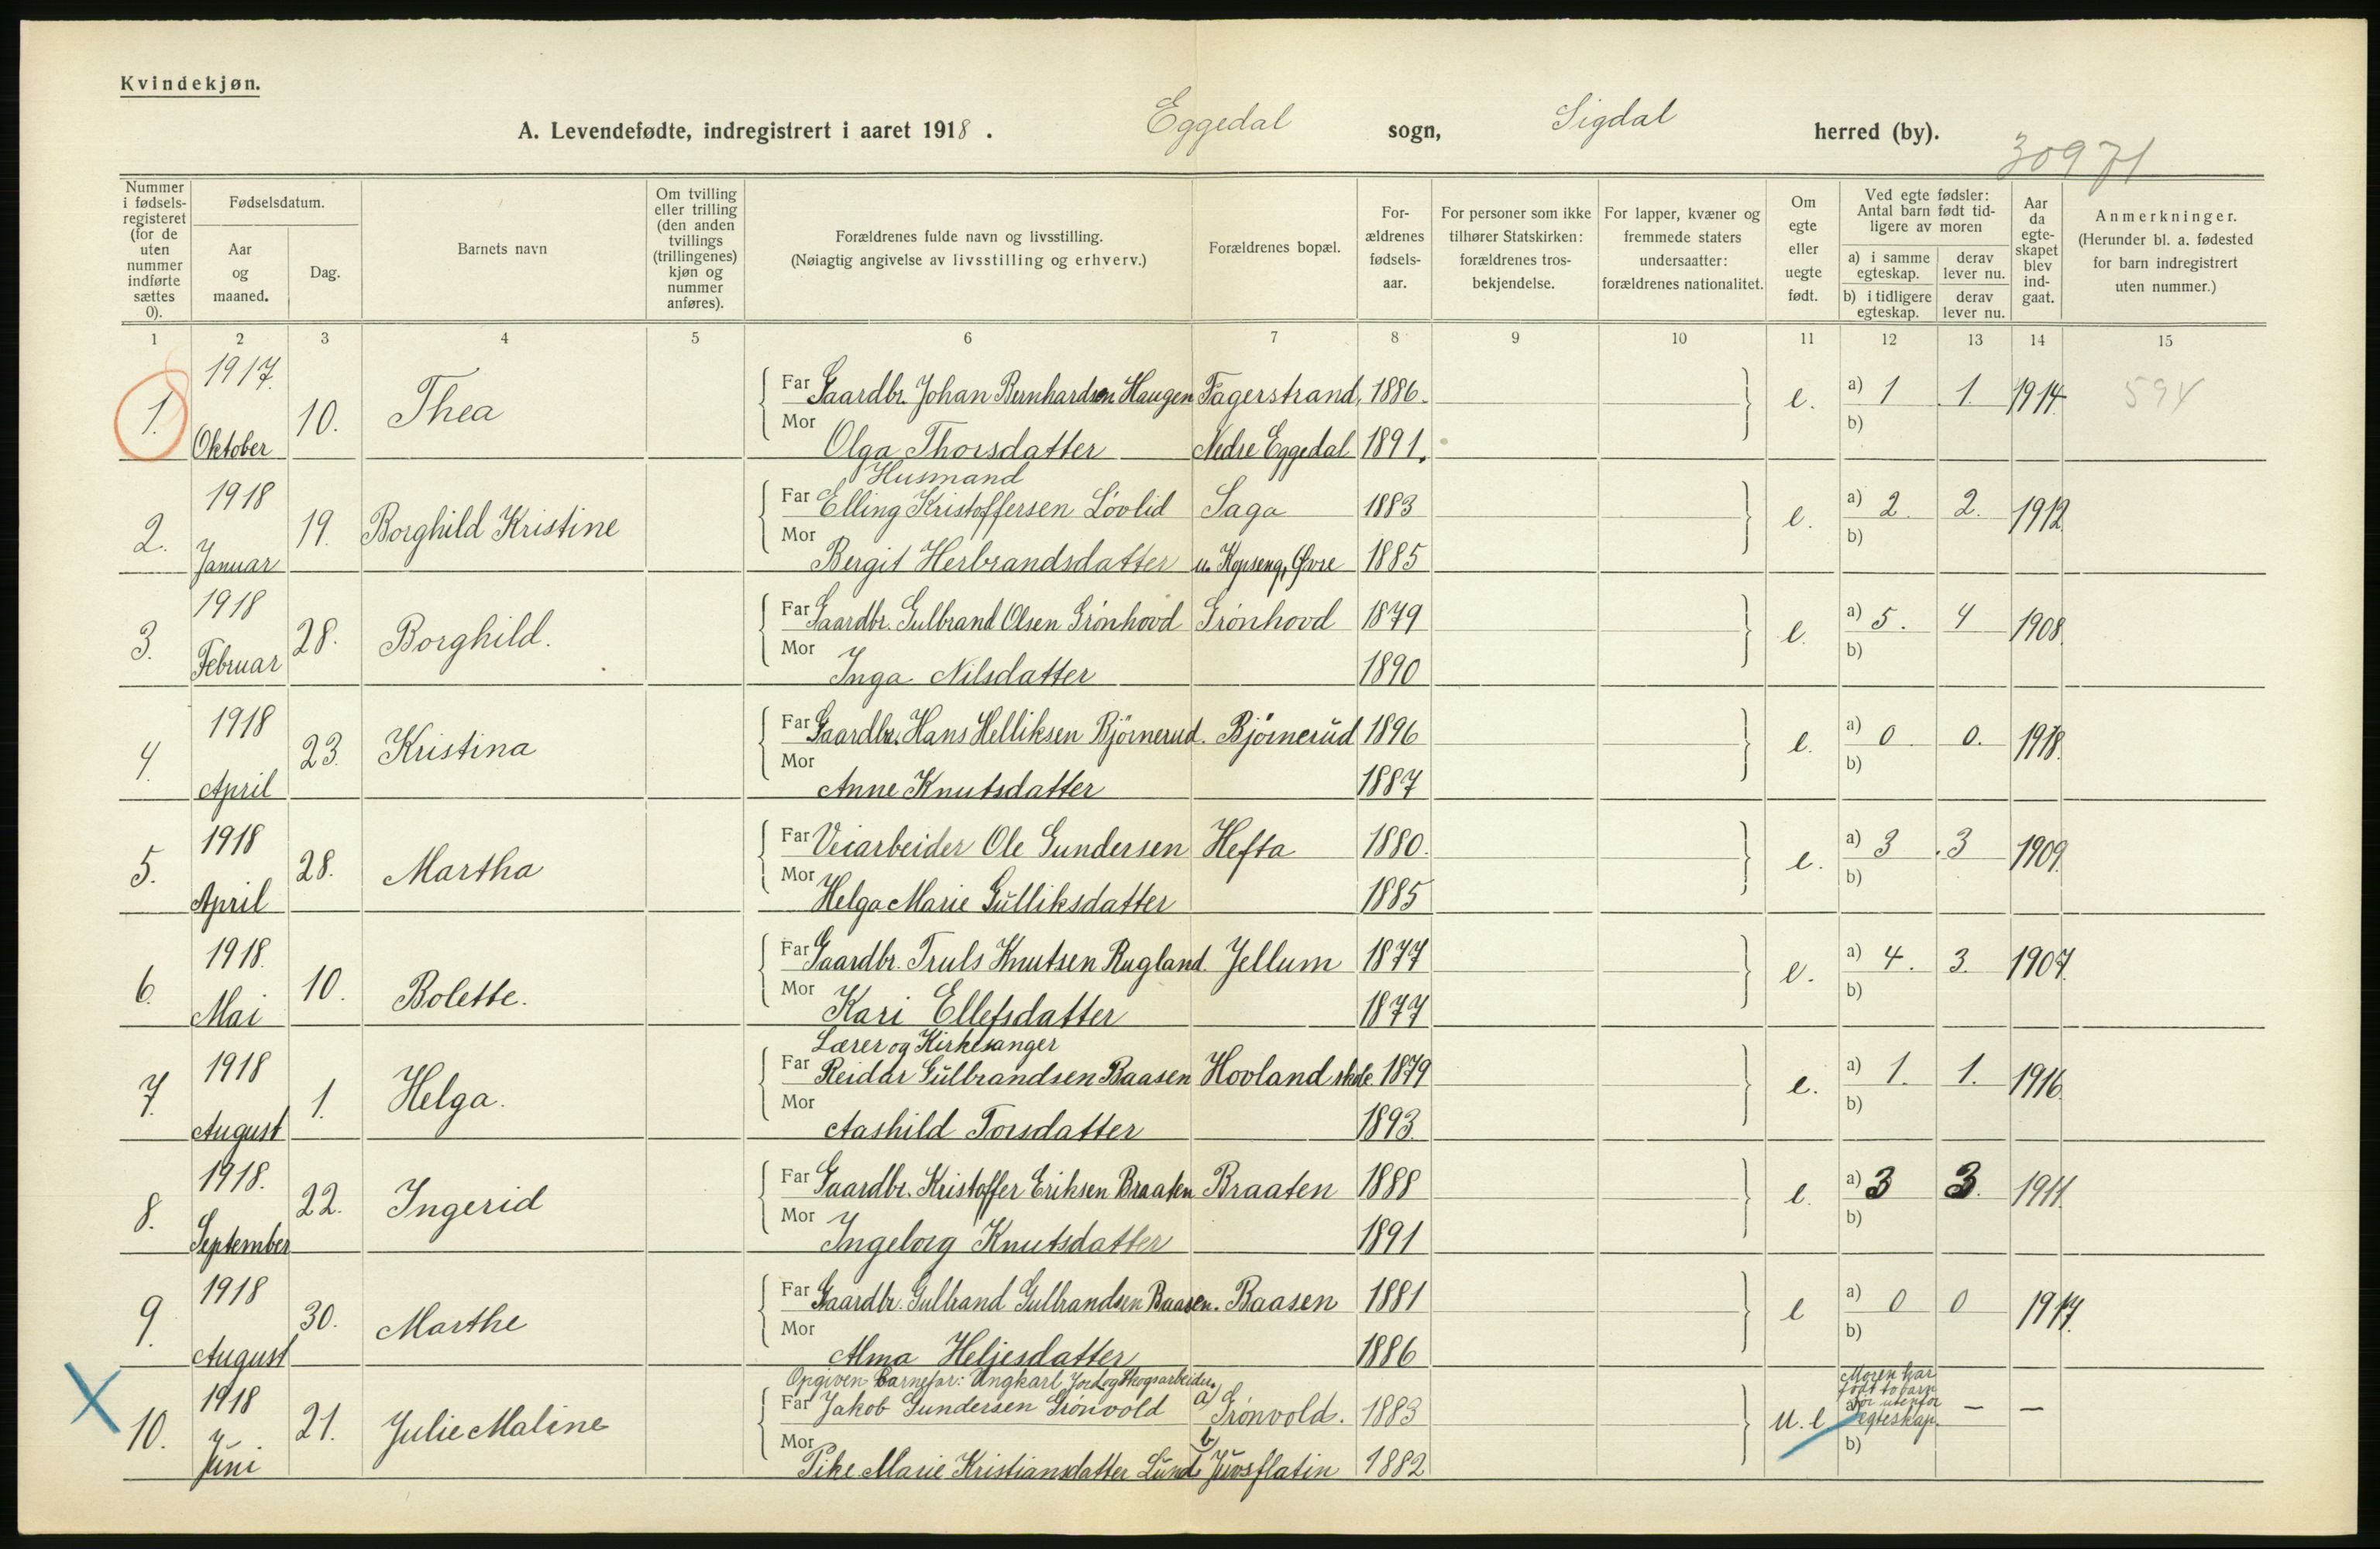 Kvindekjøn.
A. Levendefødte, indregistrert i aaret 1918. Eggedal sogn, Sigdal herred (by).
30971
Nummer i fødsels-registeret (for de uten nummer indførte sættes 0).
Fødselsdatum.
Aar og maaned.
Dag.
Barnets navn
Om tvilling eller trilling (den anden tvillings (trillingenes) kjøn og nummer anføres).
Forældrenes fulde navn og livsstilling.
(Nøiagtig angivelse av livsstilling og erhverv.)
Forældrenes bopæl.
For-ældrenes fødsels-aar.
For personer som ikke tilhører Statskirken: forældrenes tros-bekjendelse.
For lapper, kvæner og fremmede staters undersaatter: forældrenes nationalitet.
Om egte eller uegte født.
Ved egte fødsler: Antal barn født tid-ligere av moren
a) i samme egteskap. derav lever nu.
b) i tidligere egteskap. derav lever nu.
Aar da egte-skapet blev ind-gaat.
Anmerkninger.
(Herunder bl. a. fødested for barn indregistrert uten nummer.)
1 2 3 4 5 6 7 8 9 10 11 12 13 14 15
1. 1917. Oktober 10. Thea
Far Gaardbr. Johan Bernhardsen Haugen Fagerstrand, 1886. e. a) 1 1. 1914. 594
Mor Olga Thorsdatter Nedre Eggedal 1891. b)
2. 1918 Januar 19. Borghild Kristine
Husmand
Far Elling Kristoffersen Lövlid Saga 1883 e. a) 2. 2. 1912
Mor Bergit Herbrandsdatter u. Kopseng, Øvre 1885 b)
3. 1918 Februar 28. Borghild.
Far Gaardbr. Gulbrand Olsen Grönhovd Grönhovd 1879 e. a) 5. 4 1908.
Mor Inga Nilsdatter 1890 b)
4. 1918 April 23. Kristina
Far Gaardbr. Hans Helliksen Björnerud. Björnerud 1896 e. a) 0 0. 1918.
Mor Anne Knutsdatter 1887 b)
5. 1918 April 28. Martha
Far Veiarbeider Ole Gundersen Hefta 1880. e. a) 3 3 1909.
Mor Helga Marie Gulliksdatter 1885 b)
6. 1918. Mai 10. Bolette.
Far Gaardbr. Truls Knutsen Rugland. Jellum 1877 e. a) 4. 3. 1907.
Mor Kari Ellefsdatter 1877 b)
7. 1918 August 1. Helga.
Lærer og Kirkesanger
Far Reidar Gulbrandsen Baasen Hovland skole 1879 e. a) 1. 1. 1916.
Mor Aashild Torsdatter 1893. b)
8. 1918. September 22. Ingerid
Far Gaardbr. Kristoffer Eriksen Braaten Braaten 1888 e. a) 3 3. 1911.
Mor Ingeborg Knutsdatter 1891 b)
9. 1918 August 30. Marthe
Far Gaardbr. Gulbrand Gulbrandsen Baasen. Baasen 1881 e a) 0 0
Mor Alma Heljesdatter 1886 b)
10. 1918 Juni 21. Julie Maline
Opgiven barnefar: Ungkarl Jord og Skogsarbeider.
Far Jakob Gundersen Grönvold a) Grönvold. 1883 u. e a) Moren har födt to barn för utenfor egteskap. — —
Mor Pike Marie Kristiansdatter Lund b) Juvsflatin 1882 b)